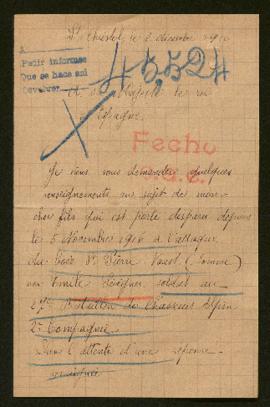 le 2 décembre 19
A
Pedir informse
Que se haga asi
Devolver
45,524
A Sa Majesté le roi
d'Espagne
Fecho
Je viens vous demander quelques
renseignements au sujet de mon
cher fils qui est porté disparu depuis
le 5 Novembre 1916 à l'attaque
du bois St Pierre Vaast (Somme)
soldat au
Bataillon de Chasseurs Alpin
2e Compagnie
Dans l'attente d'une réponse